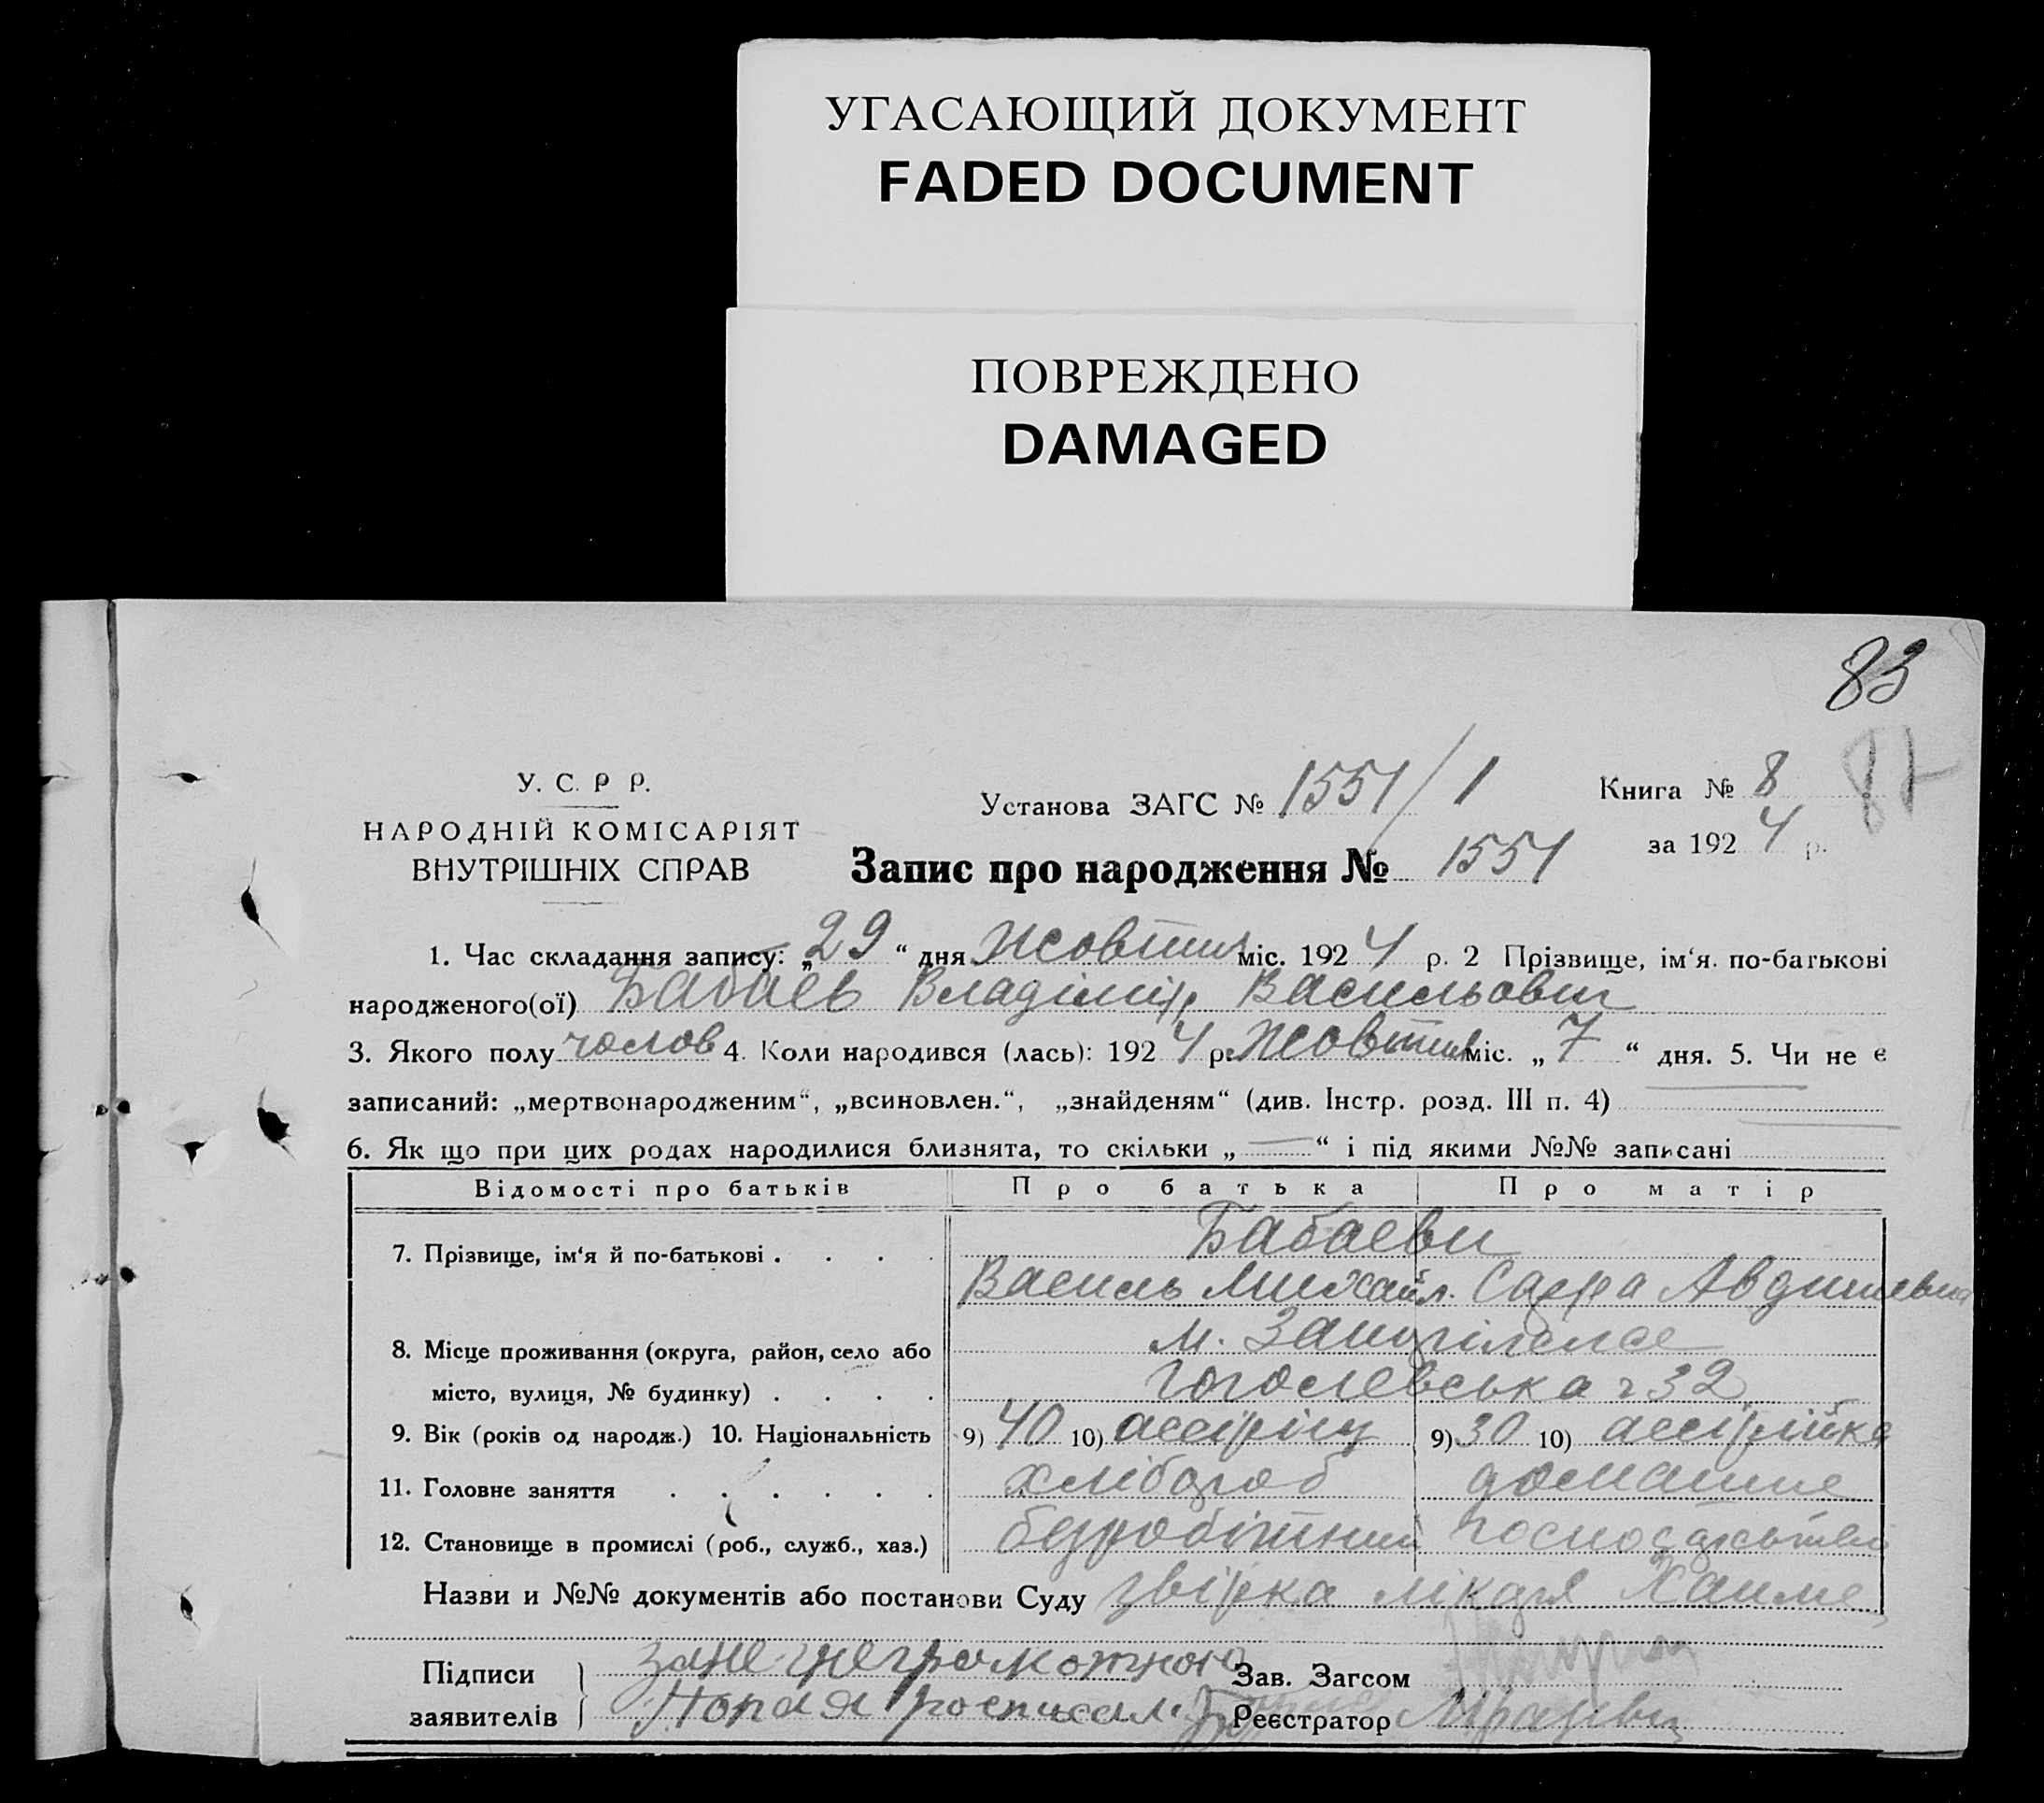 УГАСАЮЩИЙ ДОКУМЕНТ
FADED DOCUMENT
ПОВРЕЖДЕНО
DAMAGED
83
У. С. Р Р.
НАРОДНІЙ КОМІСАРІЯТ
ВНУТРІШНІХ СПРАВ
Установа ЗАГС № 1551/1
Книга № 8
за 1924 р.
Запис про народження № 1551
1. Час складання запису: „29“ дня Жовтня міс. 1924 р. 2 Прізвище, ім‘я. по-батькові
народженого(ої) Бабаев Владімір Васильович
3. Якого полу чолов 4. Коли народився (лась): 1924 р. Жовтня міс. „7“ дня. 5. Чи не є
записаний: „мертвонародженим“, „всиновлен.“, „знайденям“ (див. Інстр. розд. III п. 4)
6. Як що при цих родах народилися близнята, то скільки „—“ і під якими №№ записані
Відомості про батьків Про батька Про матір
7. Прізвище, ім‘я й по-батькові . . . . Бабаеви
Василь Михайл. Сарра
8. Місце проживання (округа, район, село або м.
місто, вулиця, № будинку) . . . . Гоголевська 32
9. Вік (років од народж.) 10. Національність 9) 40 10) ассіріц 9) 30 10) ассірійка
11. Головне заняття . . . . . . хлібороб домашне
12. Становище в промислі (роб., служб., хаз.) безробітний
Назви и №№ документів або постанови Суду звірка лікаря
Підписи
заявителів
за неграмотного
росписалс
Зав. Загсом
Реєстратор